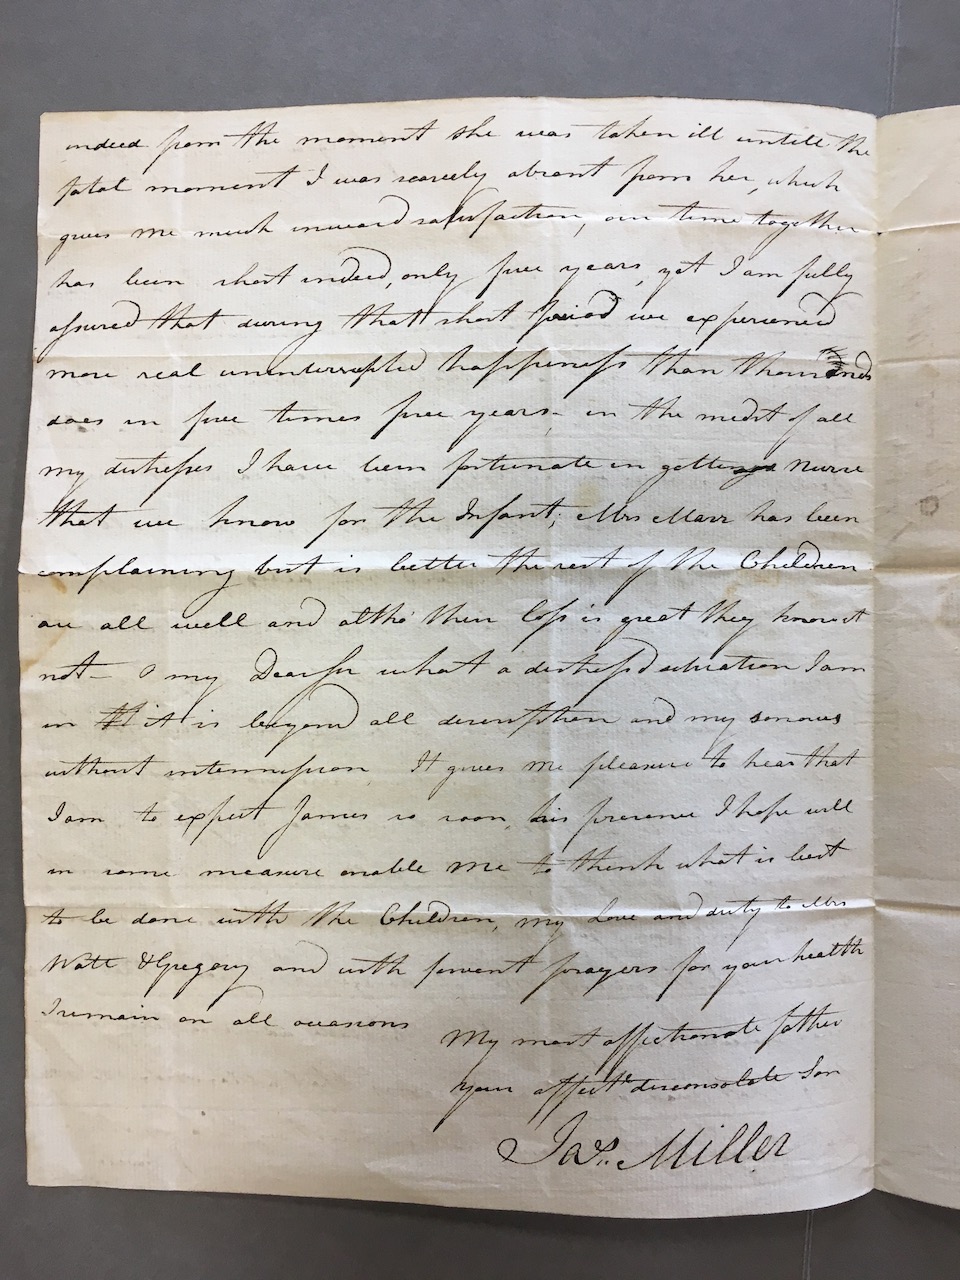 indeed from the moment she was taken ill untill the
fatal moment I was scarcely absent from her, which
gives me much inward satisfaction, our time together
has been short indeed, only five years, yet I am fully
assured that during that short Period we experienced
more real uninterrupted happiness than thousands
does in five times five years - in the midst of all
my distresses I have been fortunate in getting a Nurse
that we know for the Infant, Mrs Marr has been
complaining but is better the rest of the Children
are all well and altho their loss is great they know it
not - O my Dear Sir what a distress'd situation I am
in it is beyond all description and my sorrows
without intermission It gives me pleasure to hear that
I am to expect James so soon, his presence I hope will
in some measure enable me to think what is best
to be done with the Children, my Love and duty to Mrs
Watt & Gregory and with fervent prayers for your health
I remain on all occasions
My most affectionate father
your affect. disconsolate Son
Jas. Miller